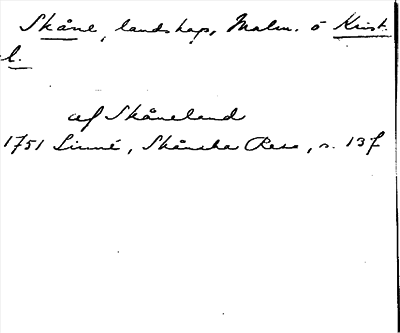 Skåne, landskap, Malm. o Krist.
l.
af Skåneland
1751 Linné, Skånska Resa, s. 137